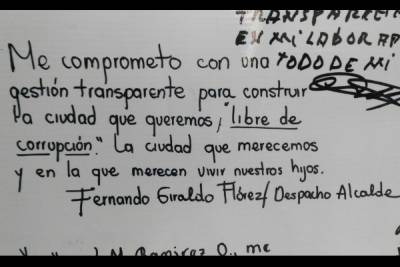 TRANSPAREC
EN MI LABOR AP
TODO DE MI
Me comprometo con una
gestión transparente para construir
la ciudad que queremos, "libre de
corrupción." La ciudad que merecemos
y en la que merecen vivir nuestros hijos.
Fernando Giraldo Flórez/ Despacho Alcalde
M. Ramirez O., me